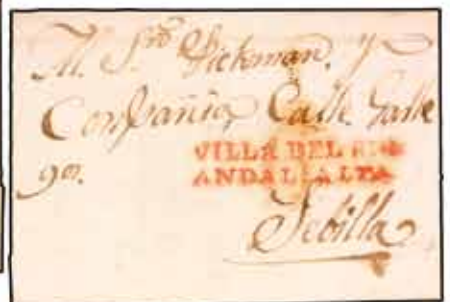 M. S.res Pickman, y
Conpañia, Calle Galle
gos.
VILLA DEL RIO
ANDAL.ALTA
Sebilla